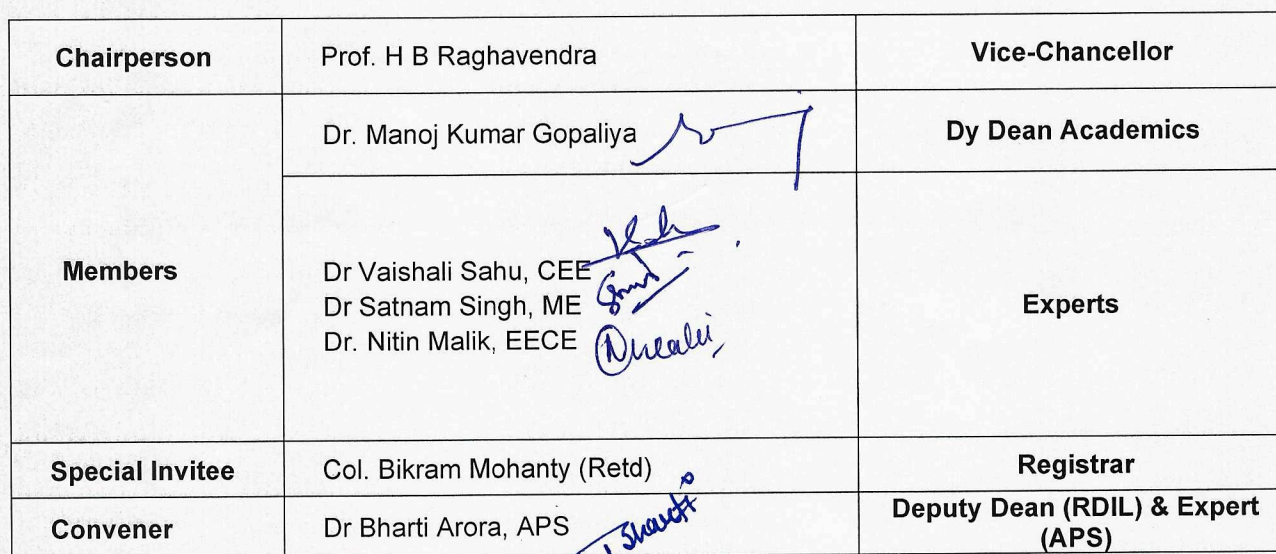 Chairperson
Prof. H B Raghavendra
Vice-Chancellor
Members
Dr. Manoj Kumar Gopaliya
Dy Dean Academics
Dr Vaishali Sahu, CEE
Dr Satnam Singh, ME
Dr. Nitin Malik, EECE
Experts
Special Invitee
Col. Bikram Mohanty (Retd)
Registrar
Convener
Dr Bharti Arora, APS
Deputy Dean (RDIL) & Expert
(APS)